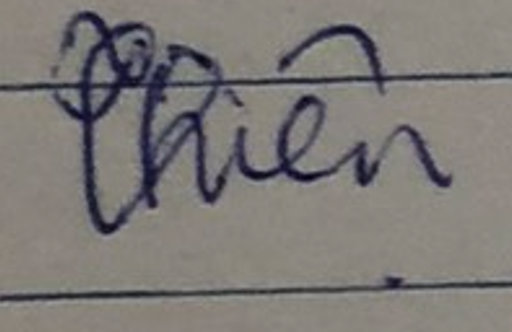 Thiện